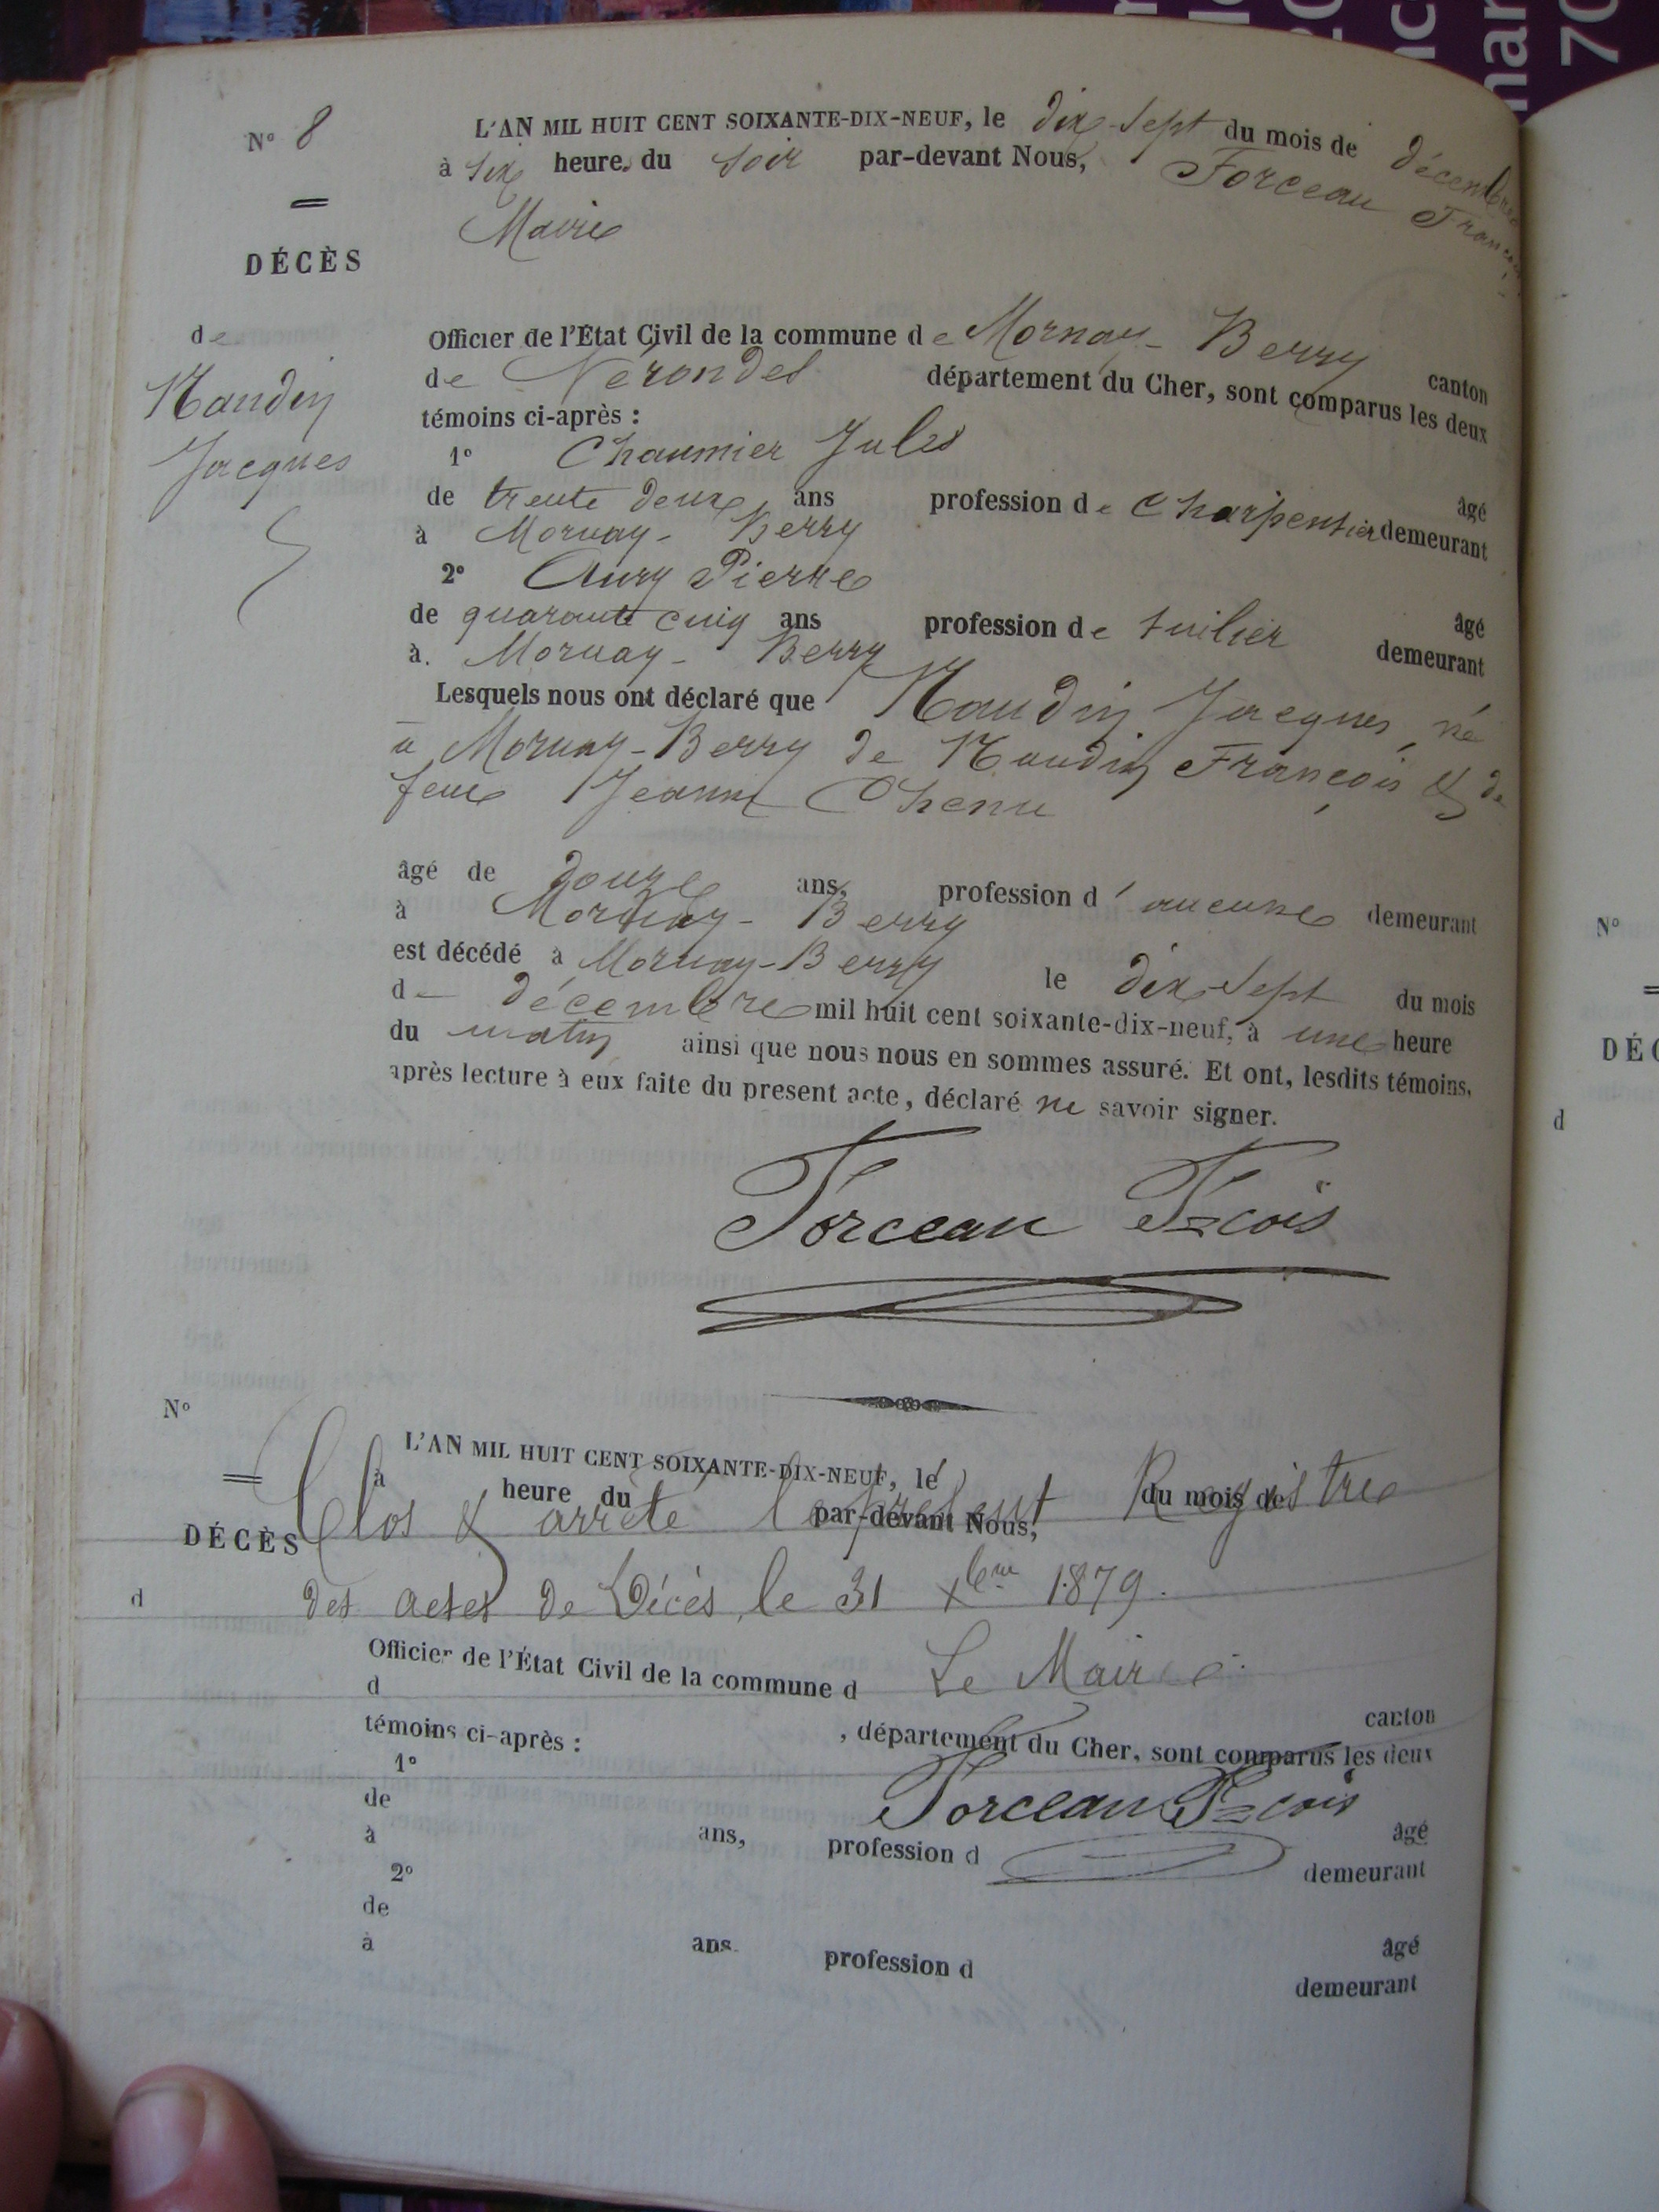 N° 8
DÉCÈS
de
Naudin
Jacques
L'AN MIL HUIT CENT SOIXANTE-DIX-NEUF, le dix-sept du mois de décembre
à six heures du soir par-devant Nous, Forceau François
Maire
Officier de l'État Civil de la commune de Mornay-Berry canton
de Nérondes département du Cher, sont comparus les deux
témoins ci-après :
1° Chaumier Jules âgé
de trente deux ans profession de Charpentier demeurant
à Mornay-Berry
2° Aury Pierre âgé
de quarante cinq ans profession de tuilier demeurant
à Mornay-Berry
Lesquels nous ont déclaré que Naudin Jacques, né
à Mornay-Berry de Naudin François & de
feue Jeanne Chenu
âgé de douze ans, profession d'aucune demeurant
à Mornay-Berry
est décédé à Mornay-Berry le dix-sept du mois
de décembre mil huit cent soixante-dix-neuf, à une heure
du matin ainsi que nous nous en sommes assuré. Et ont, lesdits témoins,
après lecture à eux faite du present acte, déclaré ne savoir signer.
Forceau Fcois
N°
DÉCÈS
d
L'AN MIL HUIT CENT SOIXANTE-DIX-NEUF, le du mois de
à heure du par-devant Nous,
Clos & arrêté le présent Registre
des actes de Décès, le 31 Xbre 1879.
Le Maire
Officier de l'État Civil de la commune d canton
d , département du Cher, sont comparus les deux
témoins ci-après :
Forceau Fcois
1° âgé
de ans, profession d demeurant
à
2° âgé
de ans profession d demeurant
à
N°
DÉC
d